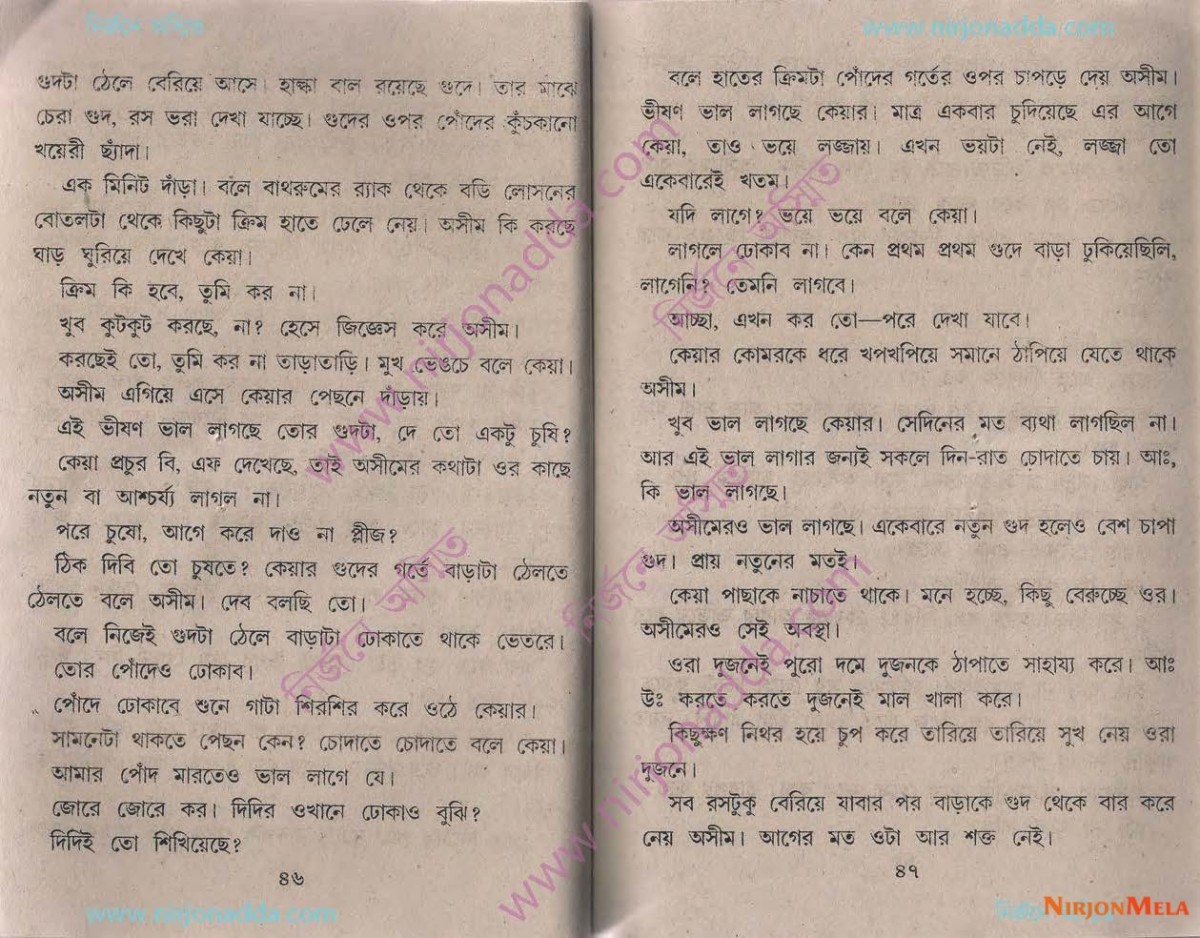 নির্জনে অসিত
www.nirjonadda.com
গুদটা ঠেলে বেরিয়ে আসে। হাল্কা বাল রয়েছে গুদে। তার মাঝে
চেরা গুদ, রস ভরা দেখা যাচ্ছে। গুদের ওপর পোঁদের কুঁচকানো
খয়েরী ছ্যাঁদা।
এক মিনিট দাঁড়া। বলে বাথরুমের র‍্যাক থেকে বডি লোসনের
বোতলটা থেকে কিছুটা ক্রিম হাতে ঢেলে নেয়। অসীম কি করছে
ঘাড় ঘুরিয়ে দেখে কেয়া।
ক্রিম কি হবে, তুমি কর না।
খুব কুটকুট করছে, না? হেসে জিজ্ঞেস করে অসীম।
করছেই তো, তুমি কর না তাড়াতাড়ি। মুখ ভেঙচে বলে কেয়া।
অসীম এগিয়ে এসে কেয়ার পেছনে দাঁড়ায়।
এই ভীষণ ভাল লাগছে তোর গুদটা, দে তো একটু চুষি?
কেয়া প্রচুর বি, এফ দেখেছে, তাই অসীমের কথাটা ওর কাছে
নতুন বা আশ্চর্য্য লাগল না।
পরে চুষো, আগে করে দাও না প্লীজ?
ঠিক দিবি তো চুষতে? কেয়ার গুদের গর্তে বাড়াটা ঠেলতে
ঠেলতে বলে অসীম। দেব বলছি তো।
বলে নিজেই গুদটা ঠেলে বাড়াটা ঢোকাতে থাকে ভেতরে।
তোর পোঁদেও ঢোকাব।
পোঁদে ঢোকাবে শুনে গাটা শিরশির করে ওঠে কেয়ার।
সামনেটা থাকতে পেছন কেন? চোদাতে চোদাতে বলে কেয়া।
আমার পোঁদ মারতেও ভাল লাগে যে।
জোরে জোরে কর। দিদির ওখানে ঢোকাও বুঝি?
দিদিই তো শিখিয়েছে?
৪৬
www.nirjonadda.com
বলে হাতের ক্রিমটা পোঁদের গর্তের ওপর চাপড়ে দেয় অসীম।
ভীষণ ভাল লাগছে কেয়ার। মাত্র একবার চুদিয়েছে এর আগে
কেয়া, তাও ভয়ে লজ্জায়। এখন ভয়টা নেই, লজ্জা তো
একেবারেই খতম।
যদি লাগে? ভয়ে ভয়ে বলে কেয়া।
লাগলে ঢোকাব না। কেন প্রথম প্রথম গুদে বাড়া ঢুকিয়েছিলি,
লাগেনি? তেমনি লাগবে।
আচ্ছা, এখন কর তো—পরে দেখা যাবে।
কেয়ার কোমরকে ধরে খপখপিয়ে সমানে ঠাপিয়ে যেতে থাকে
অসীম।
খুব ভাল লাগছে কেয়ার। সেদিনের মত ব্যথা লাগছিল না।
আর এই ভাল লাগার জন্যই সকলে দিন-রাত চোদাতে চায়। আঃ,
কি ভাল লাগছে।
অসীমেরও ভাল লাগছে। একেবারে নতুন গুদ হলেও বেশ চাপা
গুদ। প্রায় নতুনের মতই।
কেয়া পাছাকে নাচাতে থাকে। মনে হচ্ছে, কিছু বেরুচ্ছে ওর।
অসীমেরও সেই অবস্থা।
ওরা দুজনেই পুরো দমে দুজনকে ঠাপাতে সাহায্য করে। আঃ
উঃ করতে করতে দুজনেই মাল খালা করে।
কিছুক্ষণ নিথর হয়ে চুপ করে তারিয়ে তারিয়ে সুখ নেয় ওরা
দুজনে।
সব রসটুকু বেরিয়ে যাবার পর বাড়াকে গুদ থেকে বার করে
নেয় অসীম। আগের মত ওটা আর শক্ত নেই।
৪৭
NIRJONMELA